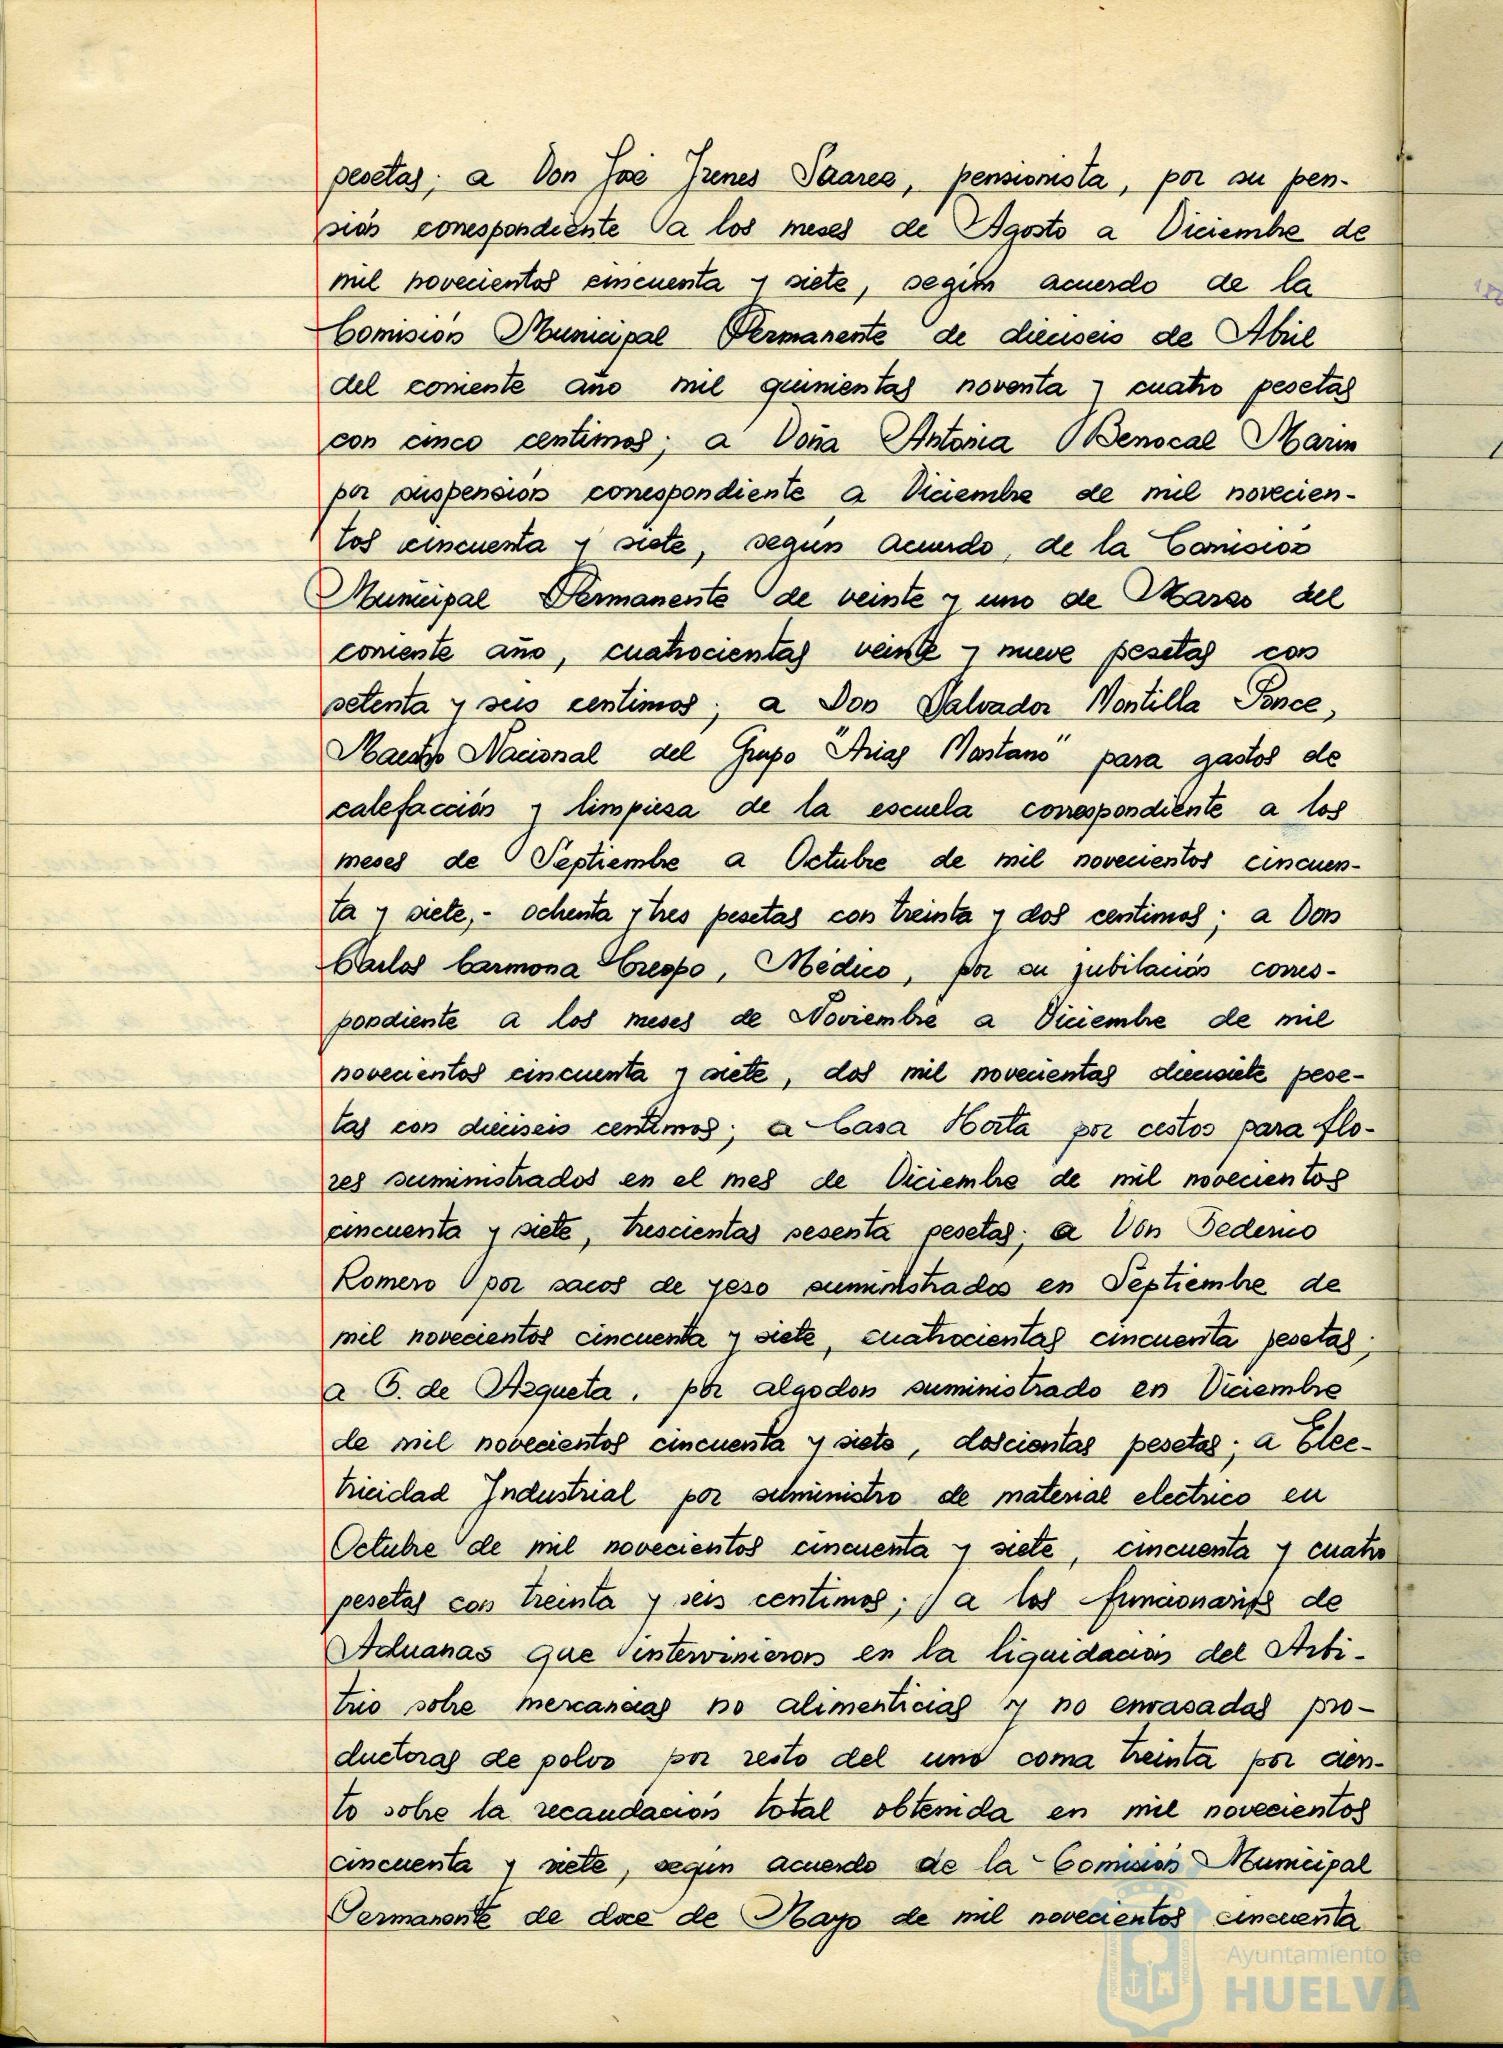 pesetas; a Don José Jrenes Suarez, pensionista, por su pen-
sión correspondiente a los meses de Agosto a Diciembre de
mil novecientos cincuenta y siete, según acuerdo de la
Comisión Municipal Permanente de dieciseis de Abril
del corriente año mil quinientas noventa y cuatro pesetas
con cinco centimos; a Doña Antonia Berrocal Marin
por suspensión correspondiente a Diciembre de mil novecien-
tos cincuenta y siete, según acuerdo, de la Comisión
Municipal Permanente de veinte y uno de Marzo del
corriente año, cuatrocientas veinte y nueve pesetas con
setenta y seis centimos; a Don Salvador Montilla Ponce,
Maestro Nacional del Grupo "Arias Montano" para gastos de
calefacción y limpieza de la escuela correspondiente a los
meses de Septiembre a Octubre de mil novecientos cincuen-
ta y siete,- ochenta y tres pesetas con treinta y dos centimos; a Don
Carlos Carmona Crespo, Médico, por su jubilación corres-
pondiente a los meses de Noviembre a Diciembre de mil
novecientos cincuenta y siete, dos mil novecientas diecisiete pese-
tas con dieciseis centimos; a Casa Horta por cestos para flo-
res suministrados en el mes de Diciembre de mil novecientos
cincuenta y siete, trescientas sesenta pesetas; a Don Federico
Romero por sacos de yeso suministrados en Septiembre de
mil novecientos cincuenta y siete, cuatrocientas cincuenta pesetas;
a de Azqueta, por algodon suministrado en Diciembre
de mil novecientos cincuenta y siete, doscientas pesetas; a Elec-
tricidad Industrial por suministro de material electrico en
Octubre de mil novecientos cincuenta y siete, cincuenta y cuatro
pesetas con treinta y seis centimos; a los funcionarios de
Aduanas que intervinieron en la liquidación del Arbi-
trio sobre mercancias no alimenticias y no envasadas pro-
ductoras de polvo por resto del uno coma treinta por cien-
to sobre la recaudación total obtenida en mil novecientos
cincuenta y siete, según acuerdo de la Comisión Municipal
Permanente de doce de Mayo de mil novecientos cincuenta
Ayuntamiento de
HUELVA